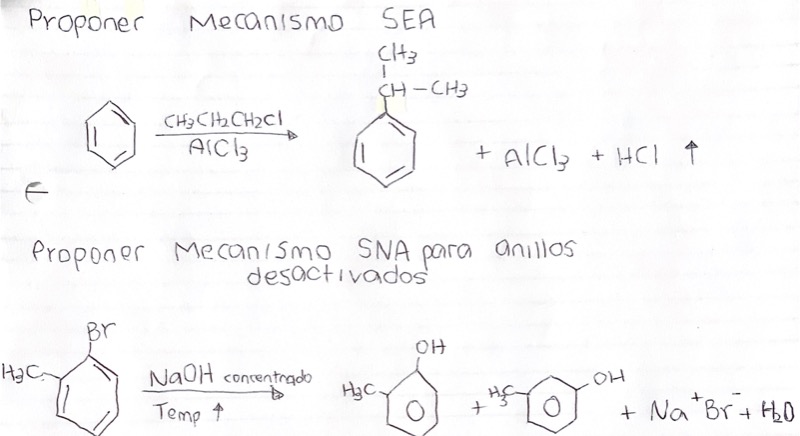 Proponer Mecanismo SEA
CH3
CH-CH3
CH3CH2CH2Cl
AlCl3
+ AlCl3 + HCl ↑
Proponer Mecanismo SNA para anillos
desactivados
Br
H3C
NaOH concentrado
Temp ↑
OH
H3C
+
H3C
OH
+ Na+Br- + H2O